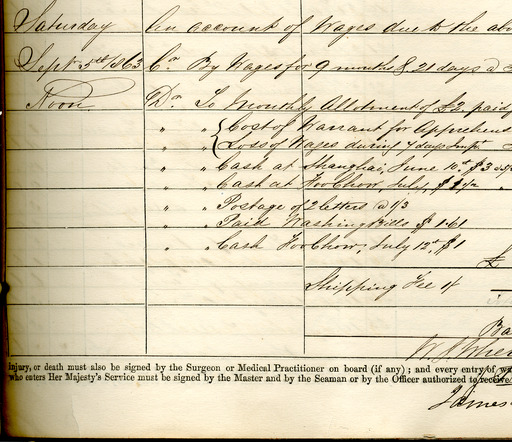 Saturday An account of Wages due to the abo
Sept 5th 1863 Cr By Wages for 9 months & 21 days @
Noon Dr To Monthly Allotment of £2 paid
" " Cost of Warrant for Apprehens
" " Loss of Wages during 7 days Impt
" " Cash at Shanghai, June 10th, $3
" " Cash at FooChow, July, $
" " Postage of 2 letters @ 1/3
" " Paid Washing Bills $ 1.61
" " Cash FooChow, July 12th, $1
£
Shipping Fee 1/
Ba
injury, or death must also be signed by the Surgeon or Medical Practitioner on board (if any); and every entry of w
who enters Her Majesty's Service must be signed by the Master and by the Seaman or by the Officer authorized to receive
James